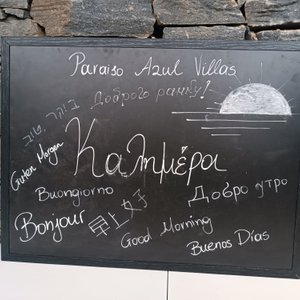 Paraiso Azul Villas
Доброго ранку!
בוקר טוב
Guten Morgen
Καλημέρα
Buongiorno
Добро утро
Bonjour
早上好
Good Morning
Buenos Días